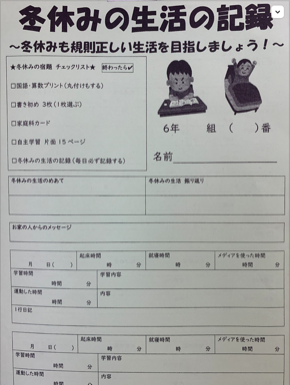 冬休みの生活の記録
~冬休みも規則正しい生活を目指しましょう!~
★冬休みの宿題 チェックリスト★ 終わったら✓
□国語・算数プリント(丸付けもする)
□書き初め 3枚(1枚選ぶ)
□家庭科カード
□自主学習 片面15ページ
□冬休みの生活の記録(毎日必ず記録する)
6年 組 ( )番
名前
冬休みの生活のめあて 冬休みの生活 振り返り
お家の人からのメッセージ
月 日( ) 起床時間 時 分 就寝時間 時 分 メディアを使った時間 時間 分
学習時間 時間 分 学習内容
運動した時間 時間 分 内容
1行日記
月 日( ) 起床時間 時 分 就寝時間 時 分 メディアを使った時間 時間 分
学習時間 時間 分 学習内容
運動した時間 内容